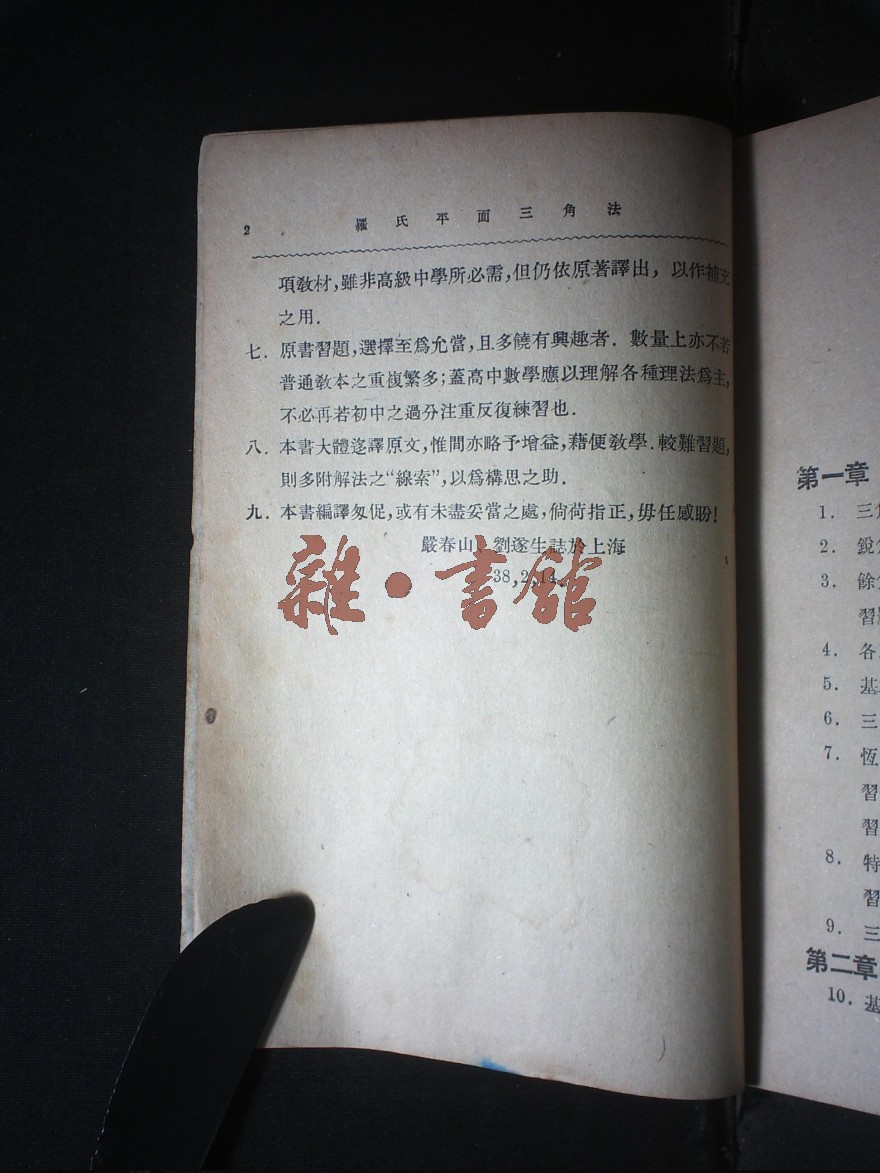 2 羅氏平面三角法
項敎材,雖非高級中學所必需,但仍依原著譯出,以作補充
之用.
七.原書習題,選擇至爲允當,且多饒有興趣者.數量上亦不若
普通敎本之重複繁多;蓋高中數學應以理解各種理法爲主,
不必再若初中之過分注重反復練習也.
八.本書大體迻譯原文,惟間亦略予增益,藉便敎學.較難習題,
則多附解法之“線索”,以爲構思之助.
九.本書編譯匆促,或有未盡妥當之處,倘荷指正,毋任感盼!
嚴春山、劉遂生誌於上海
38,2,14.
雜·書館
第一章
1. 三
2. 銳
3. 餘
習
4. 各
5. 基
6. 三
7. 恆
習
習
8. 特
習
9. 三
第二章
10. 基